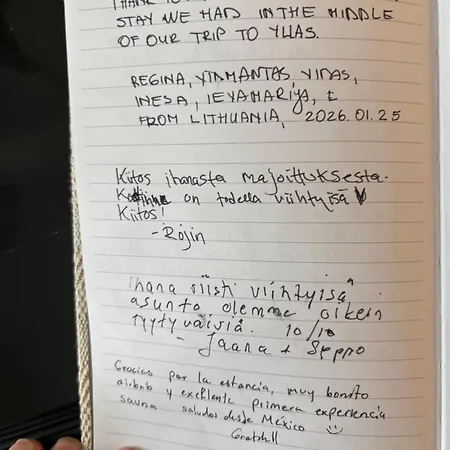 THANK
STAY WE HAD IN THE MIDDLE
OF OUR TRIP TO YLLAS.
REGINA, VIDAS,
INESA, IEVAMARIJA,
FROM LITHUANIA, 2026.01.25
Kiitos ihanasta majoituksesta.
on todella viihtyisä
Kiitos!
- Rojin
ihana siisti viihtyisä
asunto olemme oikein
tyytyväisiä. 10/10
- Jaana + Seppo
Gracias por la estancia, muy bonito
airbnb y excelente primera experiencia
sauna saludos desde México